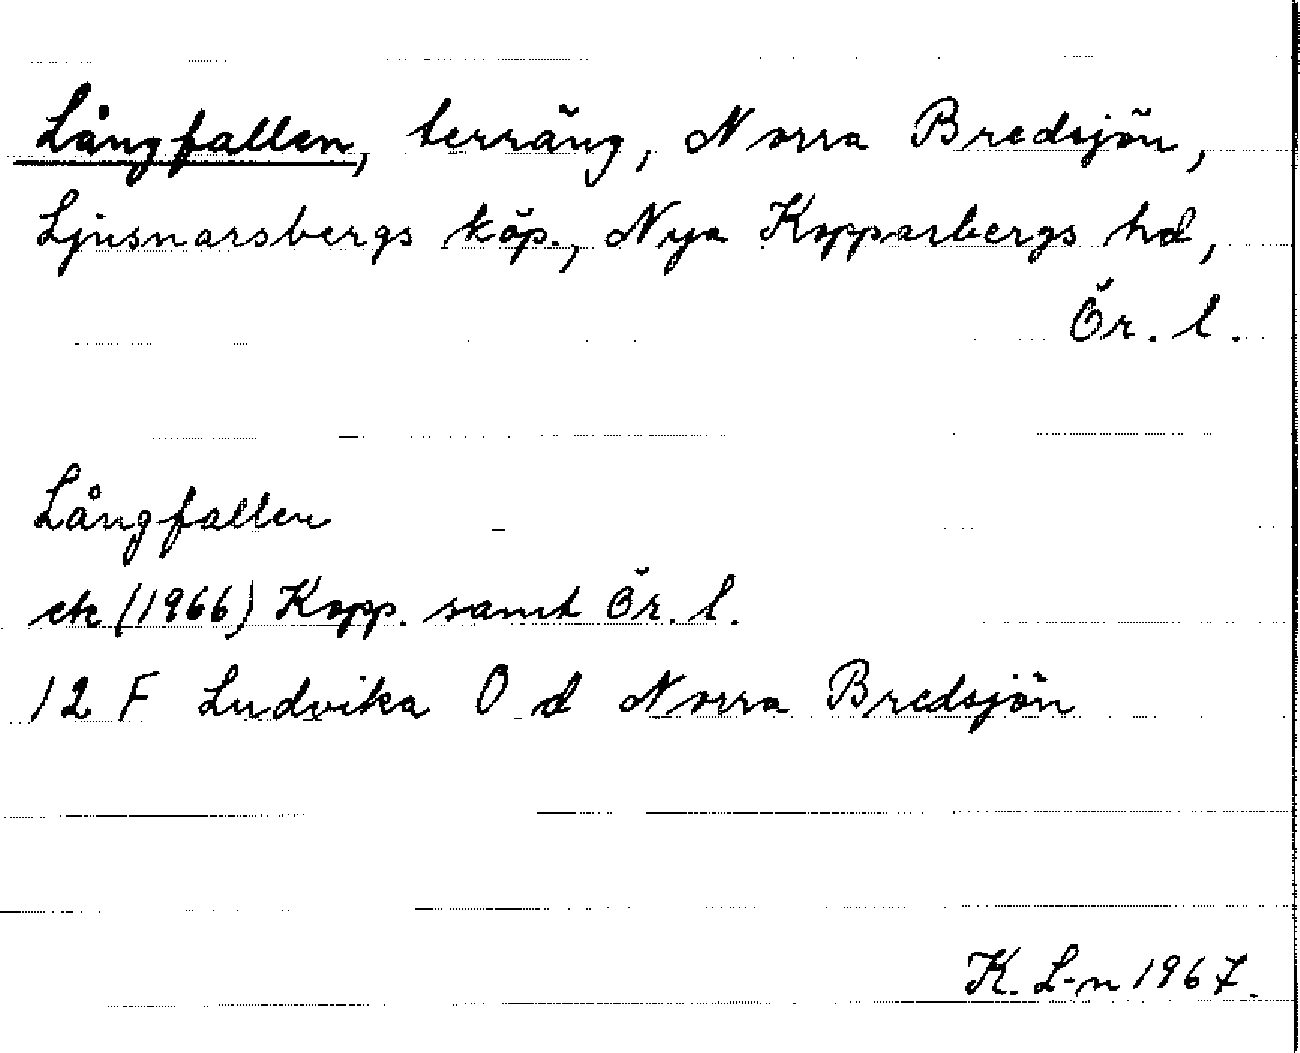 Långfallen, terräng, Norra Bredsjön,
Ljusnarsbergs köp., Nya Kopparbergs hd,
Ör. l.
Långfallen
ek (1966) Kopp. samt Ör. l.
12 F Ludvika 0 d Norra Bredsjön
K. L-n 1967.